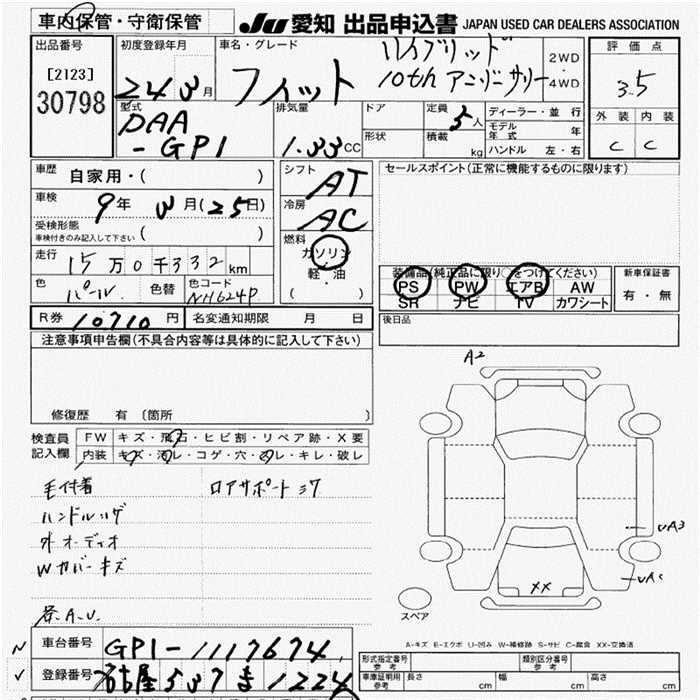 車内保管・守衛保管
JU 愛知 出品申込書 JAPAN USED CAR DEALERS ASSOCIATION
出品番号
[2123]
30798
初度登録年月
24 3 月
車名・グレード
フィット
ハイブリッド
10th アニバーサリー
2WD
・
4WD
評価点
3.5
外装 内装
C C
型式
DAA
-GP1
排気量
1.33 CC
ドア
形状
定員
5人
積載
kg
ディーラー・並行
モデル年式 年
ハンドル 左・右
車歴
自家用・( )
車検
9年 3月(25日)
受検形態
車検付きのみ記入して下さい ( )
走行
15万0千332km
色
パール
色替
色コード
NH624P
シフト
AT
冷房
AC
燃料
ガソリン
軽・油
( )
セールスポイント(正常に機能するものに限ります)
装備品(純正品に限り○をつけてください)
PS PW エアB AW
SR ナビ TV カワシート
新車保証書
有・無
R券 10710 円
名変通知期限 月 日
後日品
注意事項申告欄(不具合内容等は具体的に記入して下さい)
修復歴 有 〔箇所 〕
検査員
記入欄
FW キズ・飛石・ヒビ割・リペア跡・X要
内装 キズ・汚レ・コゲ・穴・スレ・キレ・破レ
ロアサポートヨワ
ハンドルハゲ
外オーディオ
Wカバーキズ
A2
UA3
XX
スペア
A-キズ E-エクボ U-凹み W-補修跡 S-サビ C-腐食 XX-交換済
車台番号
GP1-1117674
登録番号
名古屋 537 ま 1224
形式指定番号
参考
類別区分番号
参考
車庫証明用
参考
長さ cm
幅 cm
高さ cm